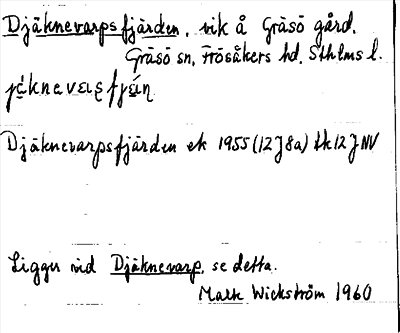 Djäknevarpsfjärden, vik å Gräsö gård.
Gräsö sn, Frösåkers hd, Sthlms l.
Djäknevarpsfjärden ek 1955 (12J8a) tk 12J NV
Ligger vid Djäknevarp, se detta.
Wickström 1960